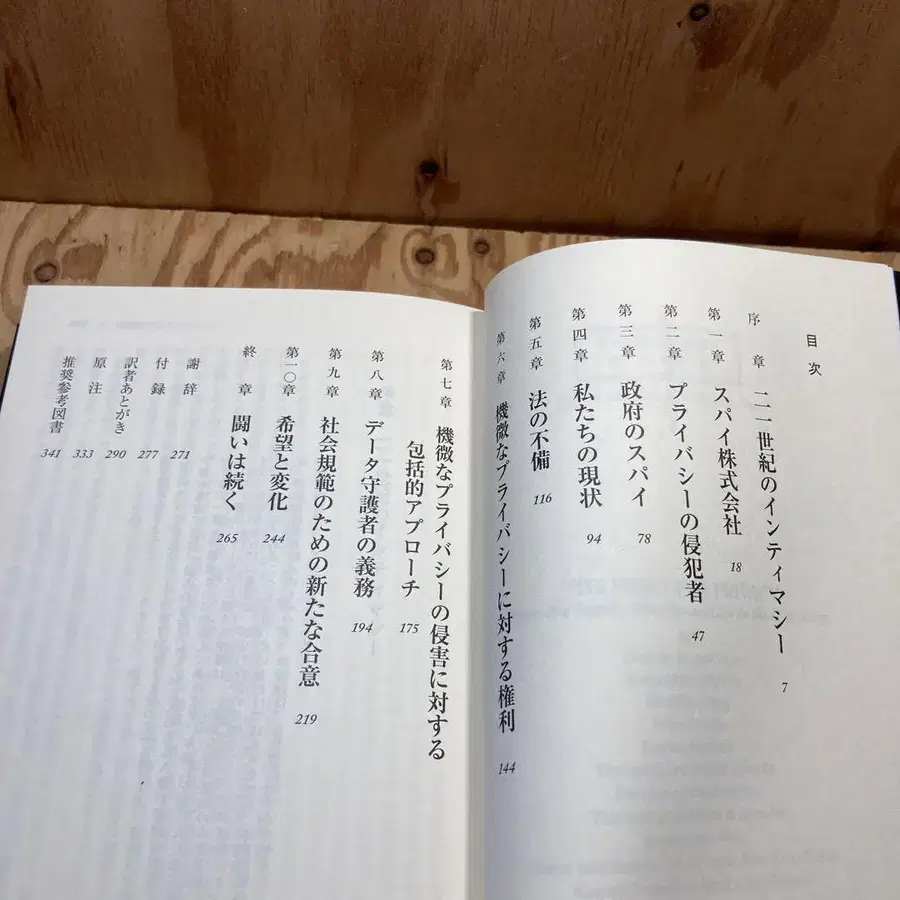 目次
序章 二一世紀のインティマシー 7
第一章 スパイ株式会社 18
第二章 プライバシーの侵犯者 47
第三章 政府のスパイ 78
第四章 私たちの現状 94
第五章 法の不備 116
第六章 機微なプライバシーに対する権利 144
第七章 機微なプライバシーの侵害に対する
包括的アプローチ 175
第八章 データ守護者の義務 194
第九章 社会規範のための新たな合意 219
第一〇章 希望と変化 244
終章 闘いは続く 265
謝辞 271
付録 277
訳者あとがき 290
原注 333
推奨参考図書 341